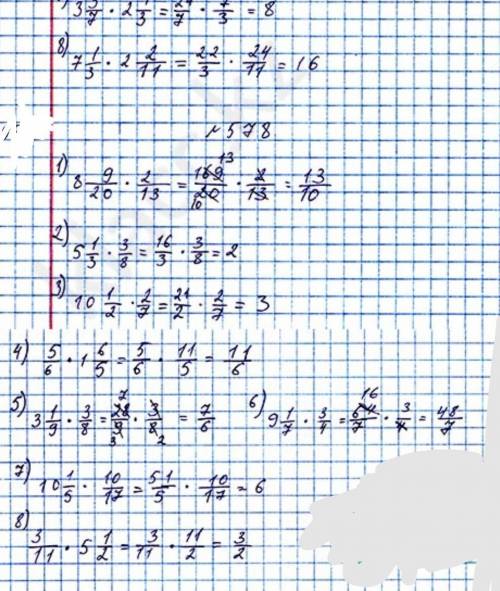 3 3/7 · 2 1/3 = 24/7 · 7/3 = 8
8) 7 1/3 · 2 2/11 = 22/3 · 24/11 = 16
№578
1) 8 9/20 · 2/13 = 169/20 · 2/13 = 13/10
13
10
2) 5 1/3 · 3/8 = 16/3 · 3/8 = 2
3) 10 1/2 · 2/7 = 21/2 · 2/7 = 3
4) 5/6 · 1 6/5 = 5/6 · 11/5 = 11/6
5) 3 1/9 · 3/8 = 28/9 · 3/8 = 7/6
7
3 2
6) 9 1/7 · 3/4 = 64/7 · 3/4 = 48/7
16
7) 10 1/5 · 10/17 = 51/5 · 10/17 = 6
8) 3/11 · 5 1/2 = 3/11 · 11/2 = 3/2